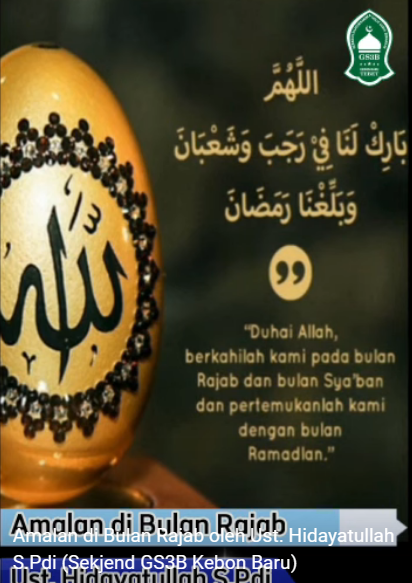 GS3B
اللَّهُمَّ
بَارِكْ لَنَا فِيْ رَجَبَ وَشَعْبَانَ
وَبَلِّغْنَا رَمَضَانَ
الله
"Duhai Allah,
berkahilah kami pada bulan
Rajab dan bulan Sya'ban
dan pertemukanlah kami
dengan bulan
Ramadlan."
Amalan di Bulan Rajab
Amalan di Bulan Rajab oleh Ust. Hidayatullah
S.Pdi (Sekjend GS3B Kebon Baru)
Ust. Hidayatullah S.Pdi